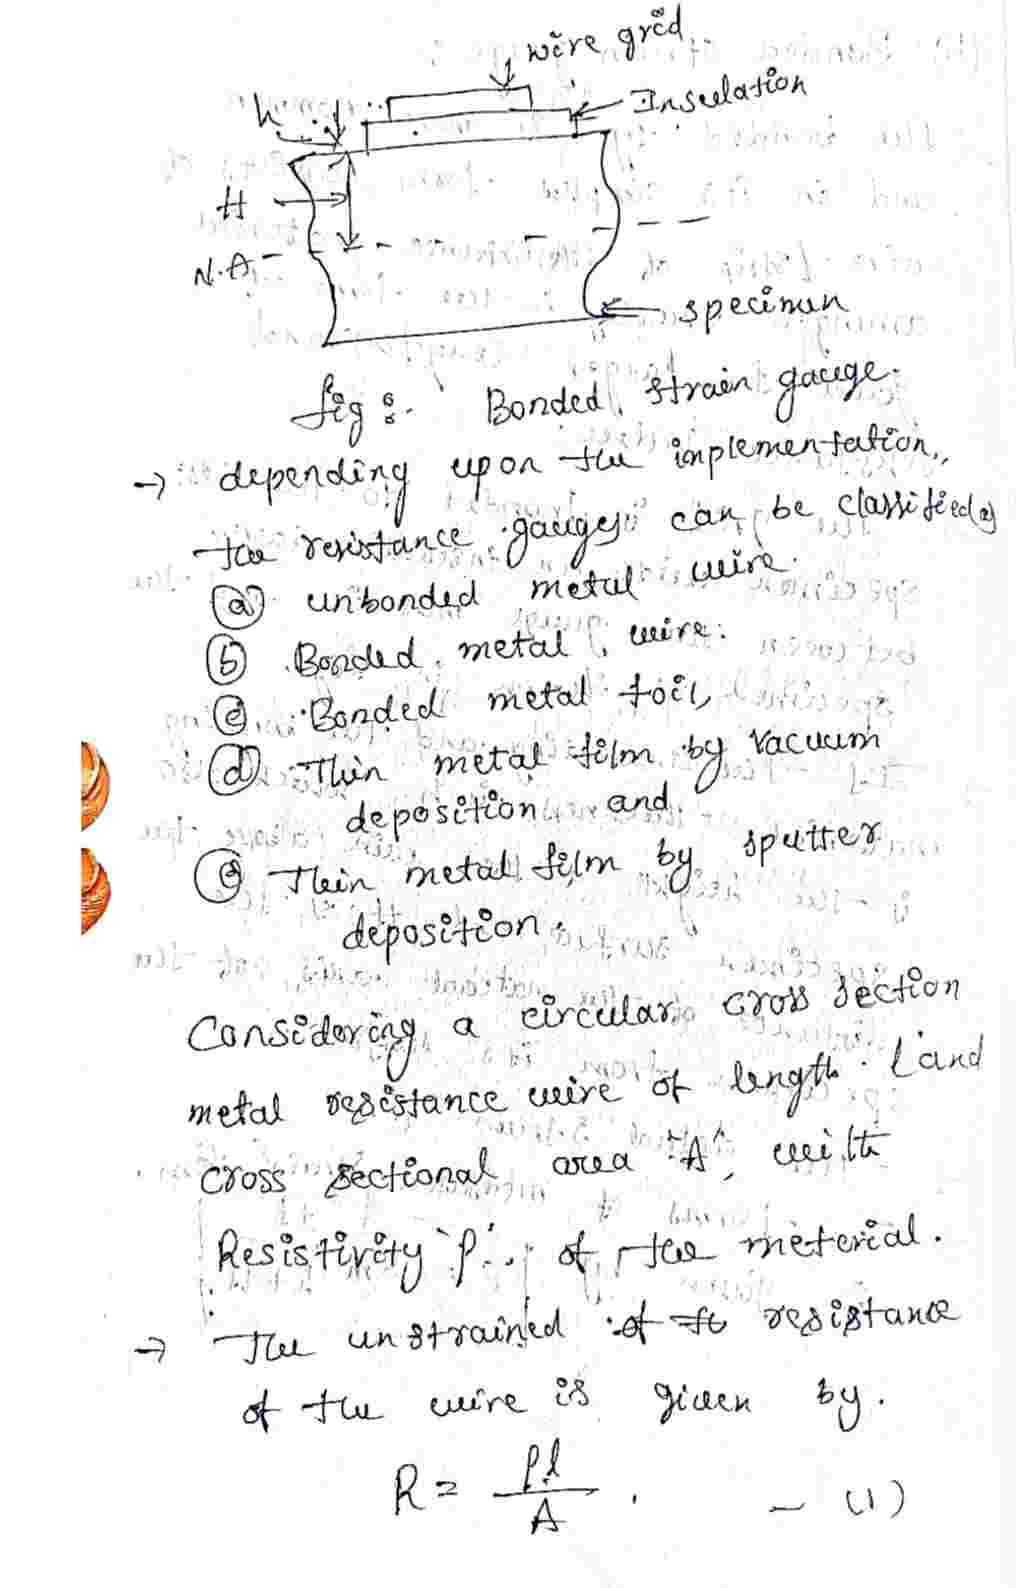 wire grid
Insulation
h
H
N.A
specimen
fig :- Bonded strain gauge.
→ depending upon the implementation,
the resistance gauges can be classified as
(a) unbonded metal wire.
(b) Bonded metal wire.
(c) Bonded metal foil,
(d) Thin metal film by vacuum
deposition and
(e) Thin metal film by sputter
deposition.
Considering a circular cross section
metal resistance wire of length 'l' and
cross sectional area 'A', with
Resistivity 'ρ' of the meterial.
→ The unstrained of resistance
of the wire is given by.
R = ρl/A . - (1)